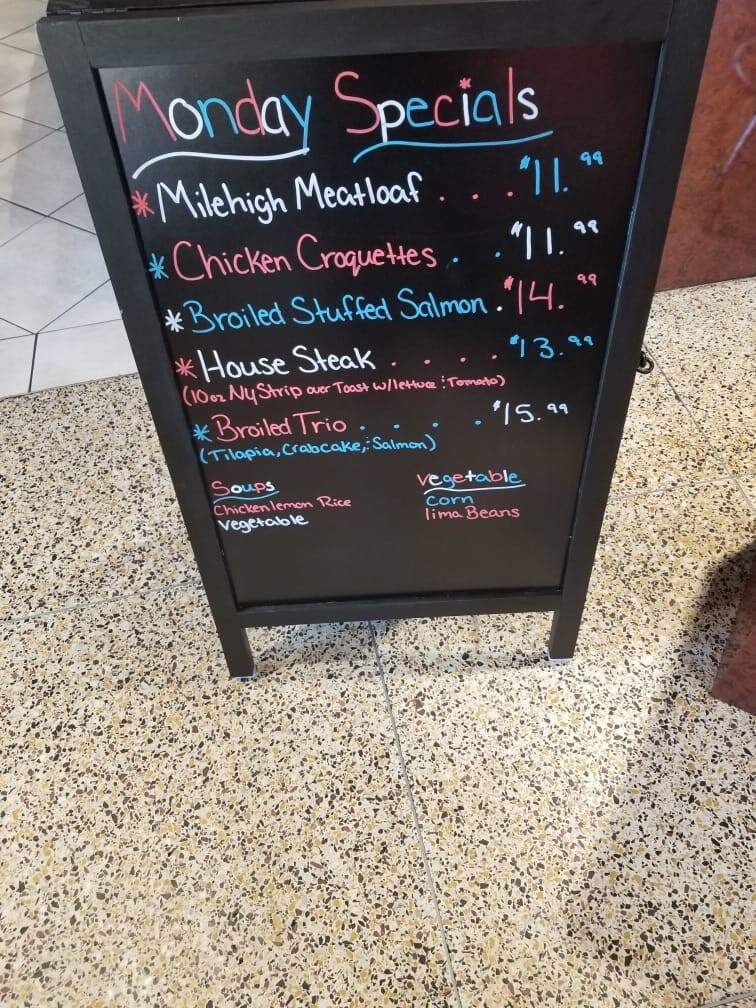 Monday Specials
* Milehigh Meatloaf . . . $11.99
* Chicken Croquettes . . $11.99
* Broiled Stuffed Salmon . $14.99
* House Steak . . . . $13.99
(10oz Ny Strip over Toast w/lettuce & Tomato)
* Broiled Trio . . . . $15.99
(Tilapia, Crabcake, & Salmon)
Soups
Chicken lemon Rice
Vegetable
Vegetable
Corn
lima Beans